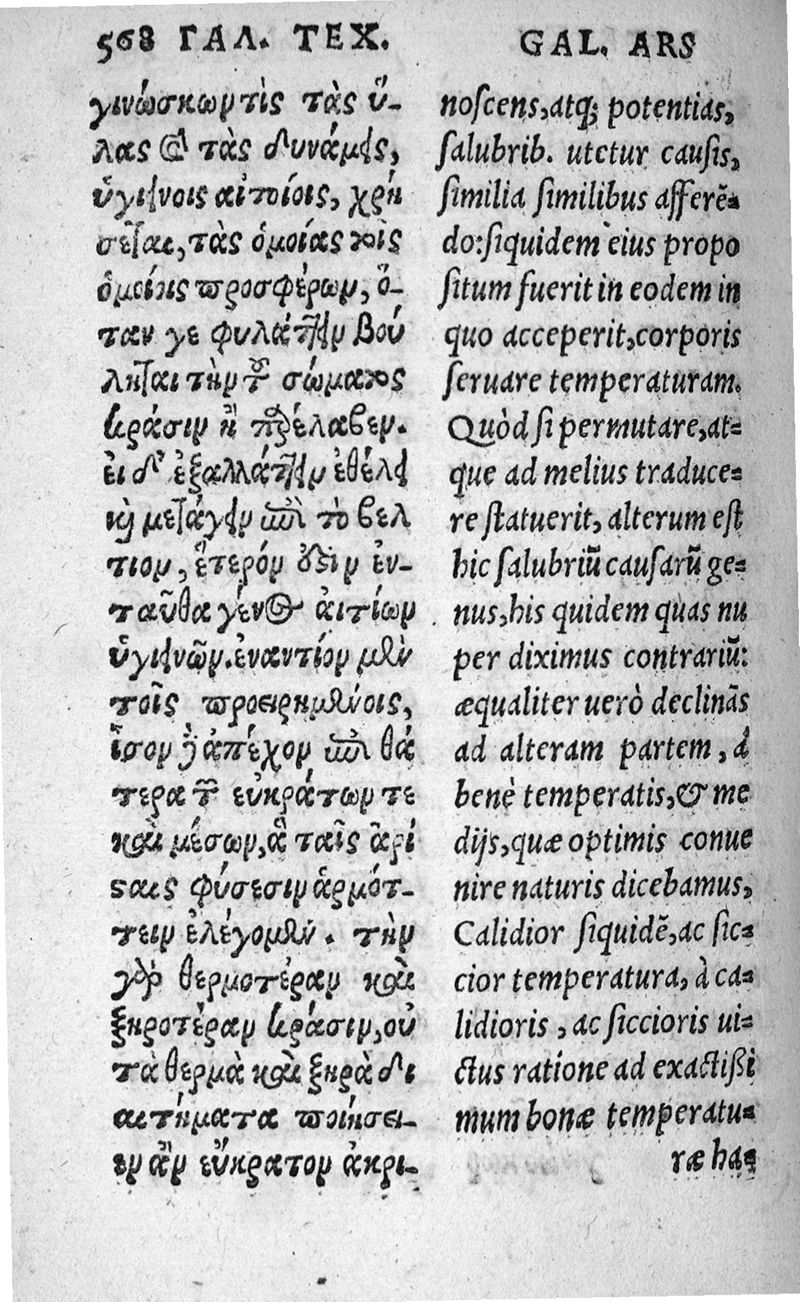 568 ΓΑΛ. ΤΕΧ.
γινώσκων τις τὰς ὕ-
λας καὶ τὰς δυνάμεις,
ὑγιεινοῖς αἰτίοις, χρή
σεται, τὰς ὁμοίας τοῖς
ὁμοίοις προσφέρων, ὅ-
ταν γε φυλάττειν βού
ληται τὴν τοῦ σώματος
κρᾶσιν ἣν παρέλαβεν.
εἰ δ' ἐξαλλάττειν ἐθέλει
καὶ μετάγειν ἐπὶ τὸ βελ
τιον, ἕτερόν ἐστιν ἐν-
ταῦθα γένος αἰτίων
ὑγιεινῶν. ἐναντίον μὲν
τοῖς προειρημένοις,
ἴσον δ' ἀπέχον ἐπὶ θά
τερα τῶν εὐκράτων τε
καὶ μέσων, ἃ ταῖς ἀρί
σταις φύσεσιν ἁρμότ-
τειν ἐλέγομεν. τὴν
γὰρ θερμοτέραν καὶ
ξηροτέραν κρᾶσιν, οὐ
τὰ θερμὰ καὶ ξηρὰ δι
αιτήματα ποιήσει-
εν ἂν εὔκρατον ἀκρι-
GAL. ARS
noscens, atq; potentias,
salubrib. utetur causis,
similia similibus afferē-
do: siquidem eius propo
situm fuerit in eodem in
quo acceperit, corporis
seruare temperaturam.
Quòd si permutare, at-
que ad melius traduce-
re statuerit, alterum est
hic salubriū causarū ge-
nus, his quidem quas nu
per diximus contrariū:
æqualiter uerò declinās
ad alteram partem, à
benè temperatis, & me
dijs, quæ optimis conue
nire naturis dicebamus,
Calidior siquidē, ac sic-
cior temperatura, à ca-
lidioris, ac siccioris ui-
ctus ratione ad exactissi
mum bonæ temperatu-
ræ ha-